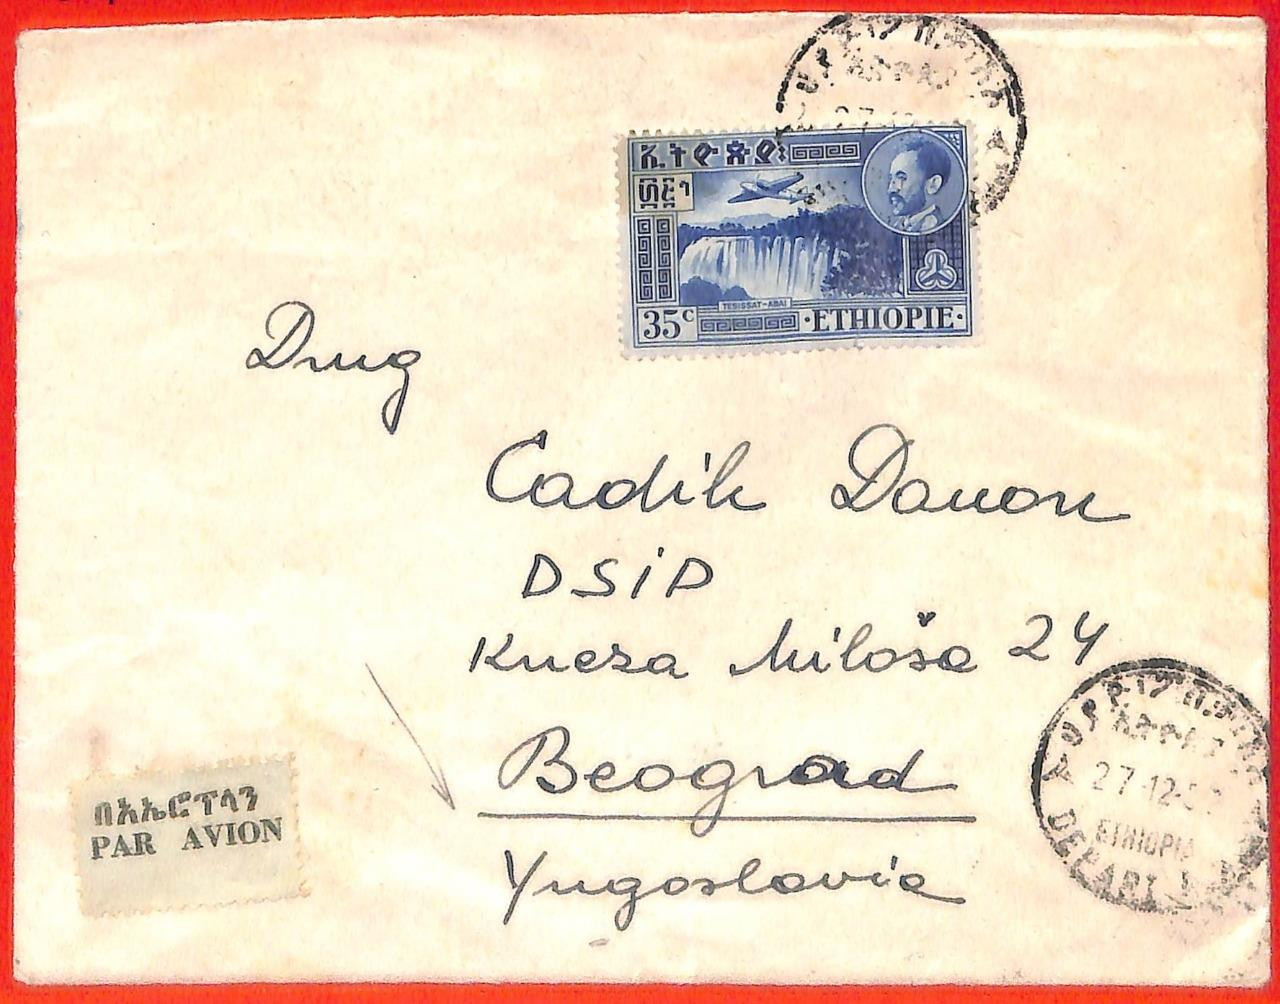 ኢትዮጵያ፡
TESISSAT-ABAI
35c
·ETHIOPIE·
Drug
Cadik Danon
DSIP
Kneza Miloša 24
Beograd
Yugoslavia
በአኤሮፕላን
PAR AVION
27-12-5
ETHIOPIA
DEPART